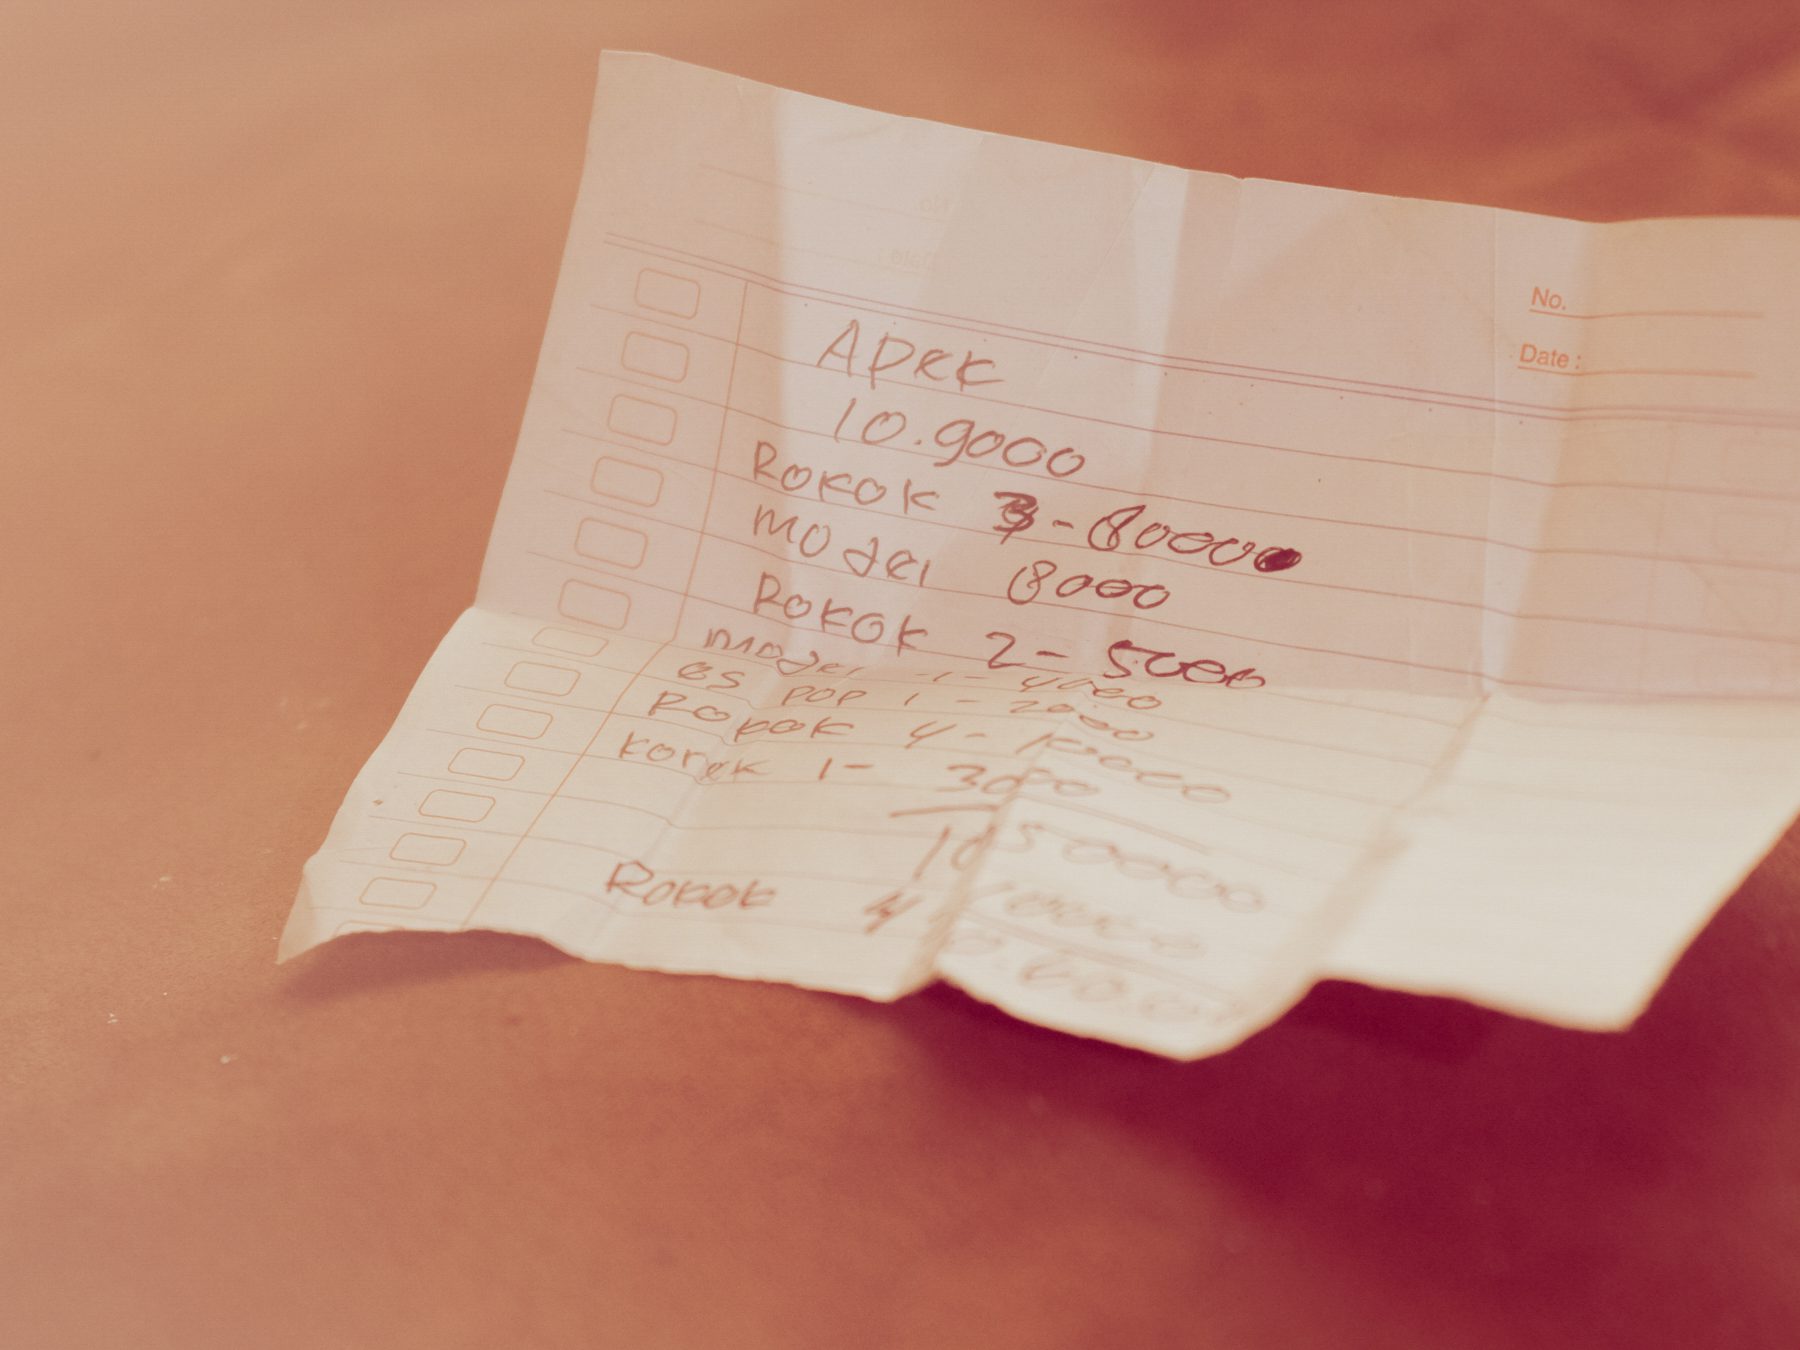 No.
Date :
APEK
10.9000
ROKOK 3 - 80000
model 8000
ROKOK 2 - 5000
model -1- 4000
es pop 1 - 2000
Rokok 4 - 10000
korek 1- 3000
1050000
Rokok 4 10000